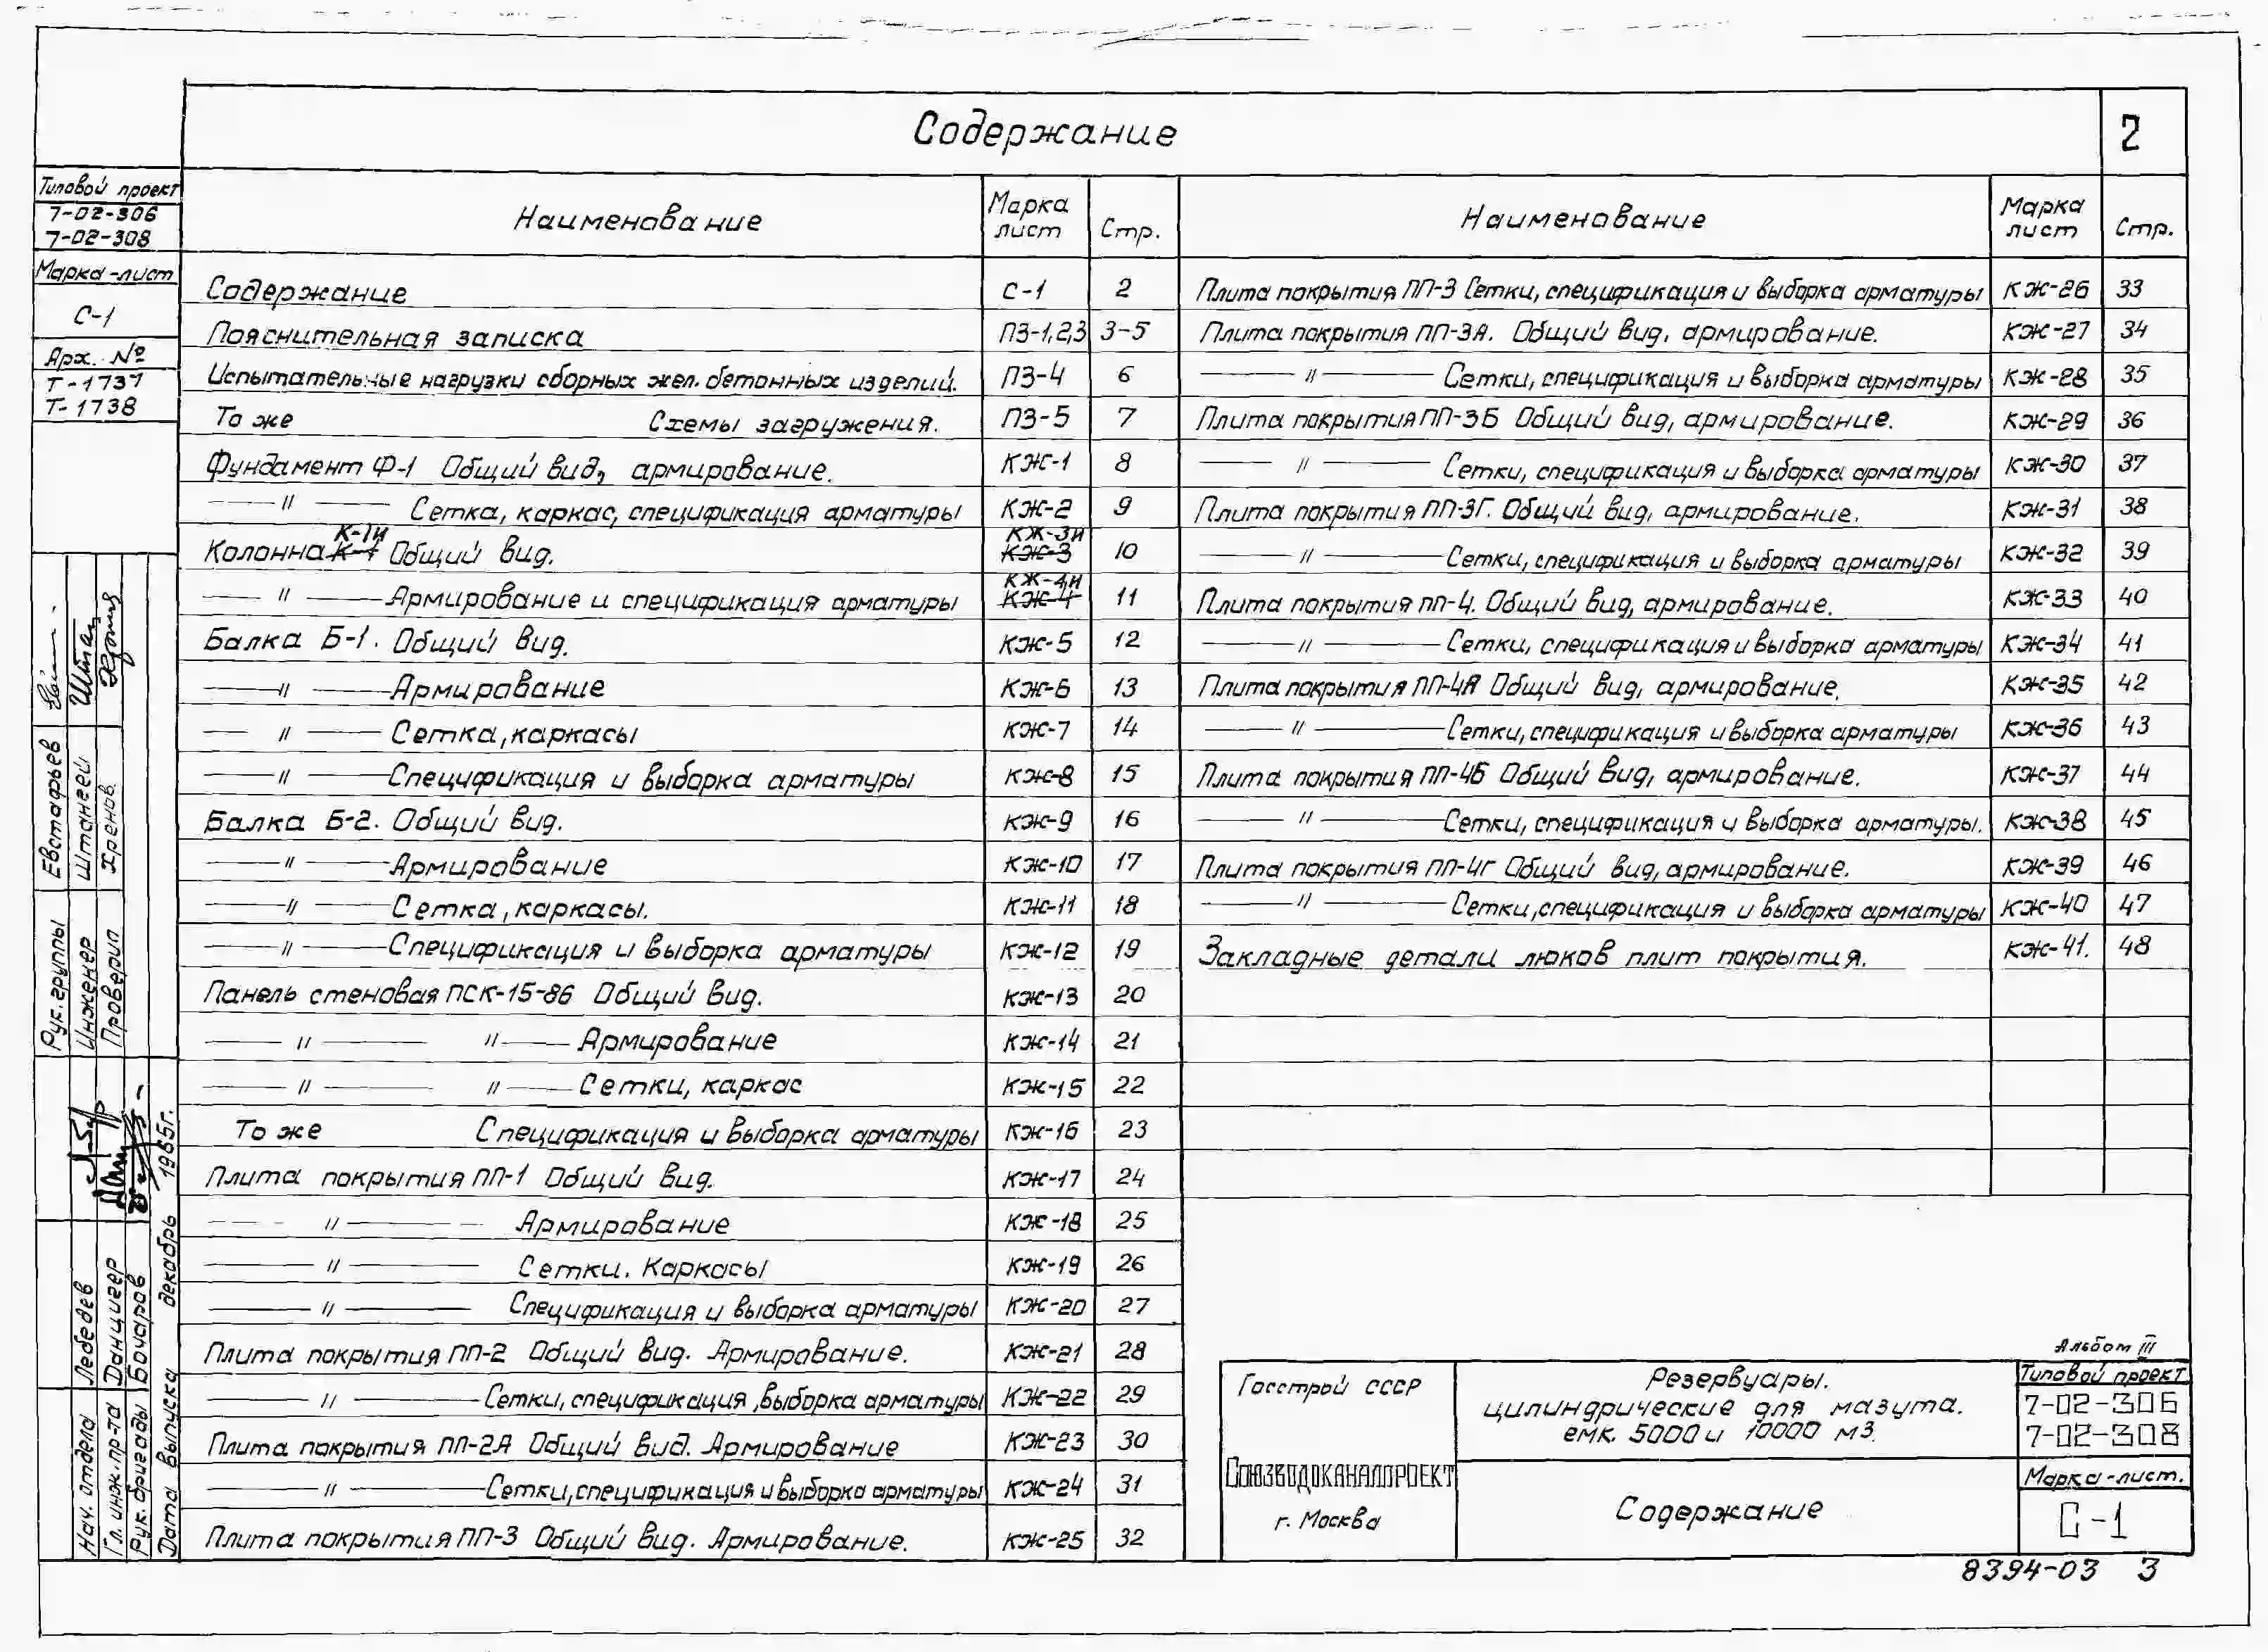 Содержание
2
Наименование Марка лист Стр.
Содержание С-1 2
Пояснительная записка ПЗ-1,2,3 3-5
Испытательные нагрузки сборных жел. бетонных изделий. ПЗ-4 6
То же Схемы загружения. ПЗ-5 7
Фундамент Ф-1 Общий вид, армирование. КЖ-1 8
—— " —— Сетка, каркас, спецификация арматуры КЖ-2 9
К-1и КЖ-3и
Колонна К-1 Общий вид. КЖ-3 10
КЖ-4и
—— " —— Армирование и спецификация арматуры КЖ-4 11
Балка Б-1. Общий вид. КЖ-5 12
—— " —— Армирование КЖ-6 13
—— " —— Сетка, каркасы КЖ-7 14
—— " —— Спецификация и выборка арматуры КЖ-8 15
Балка Б-2. Общий вид. КЖ-9 16
—— " —— Армирование КЖ-10 17
—— " —— Сетка, каркасы. КЖ-11 18
—— " —— Спецификация и выборка арматуры КЖ-12 19
Панель стеновая ПСК-15-86 Общий вид. КЖ-13 20
—— " —— " —— Армирование КЖ-14 21
—— " —— " —— Сетки, каркас КЖ-15 22
То же Спецификация и выборка арматуры КЖ-16 23
Плита покрытия ПП-1 Общий вид. КЖ-17 24
—— " —— Армирование КЖ-18 25
—— " —— Сетки. Каркасы КЖ-19 26
—— " —— Спецификация и выборка арматуры КЖ-20 27
Плита покрытия ПП-2 Общий вид. Армирование. КЖ-21 28
—— " —— Сетки, спецификация, выборка арматуры КЖ-22 29
Плита покрытия ПП-2А Общий вид. Армирование КЖ-23 30
—— " —— Сетки, спецификация и выборка арматуры КЖ-24 31
Плита покрытия ПП-3 Общий вид. Армирование. КЖ-25 32
Наименование Марка лист Стр.
Плита покрытия ПП-3 Сетки, спецификация и выборка арматуры КЖ-26 33
Плита покрытия ПП-3А. Общий вид, армирование. КЖ-27 34
—— " —— Сетки, спецификация и выборка арматуры КЖ-28 35
Плита покрытия ПП-3Б Общий вид, армирование. КЖ-29 36
—— " —— Сетки, спецификация и выборка арматуры КЖ-30 37
Плита покрытия ПП-3Г. Общий вид, армирование. КЖ-31 38
—— " —— Сетки, спецификация и выборка арматуры КЖ-32 39
Плита покрытия ПП-4. Общий вид, армирование. КЖ-33 40
—— " —— Сетки, спецификация и выборка арматуры КЖ-34 41
Плита покрытия ПП-4А Общий вид, армирование. КЖ-35 42
—— " —— Сетки, спецификация и выборка арматуры КЖ-36 43
Плита покрытия ПП-4Б Общий вид, армирование. КЖ-37 44
—— " —— Сетки, спецификация и выборка арматуры. КЖ-38 45
Плита покрытия ПП-4Г Общий вид, армирование. КЖ-39 46
—— " —— Сетки, спецификация и выборка арматуры КЖ-40 47
Закладные детали люков плит покрытия. КЖ-41. 48
Типовой проект
7-02-306
7-02-308
Марка-лист
С-1
Арх. №
Т-1737
Т-1738
Рук. группы Евстафьев
Инженер Штангей
Проверил Хренов.
Нач. отдела Лебедев
Гл. инж. пр-та Данцигер
Рук. бригады Бочаров
Дата выпуска декабрь 1965г.
Госстрой СССР
Союзводоканалпроект
г. Москва
Резервуары.
цилиндрические для мазута.
емк. 5000 и 10000 м3.
Содержание
Альбом III
Типовой проект
7-02-306
7-02-308
Марка-лист.
С-1
8394-03 3